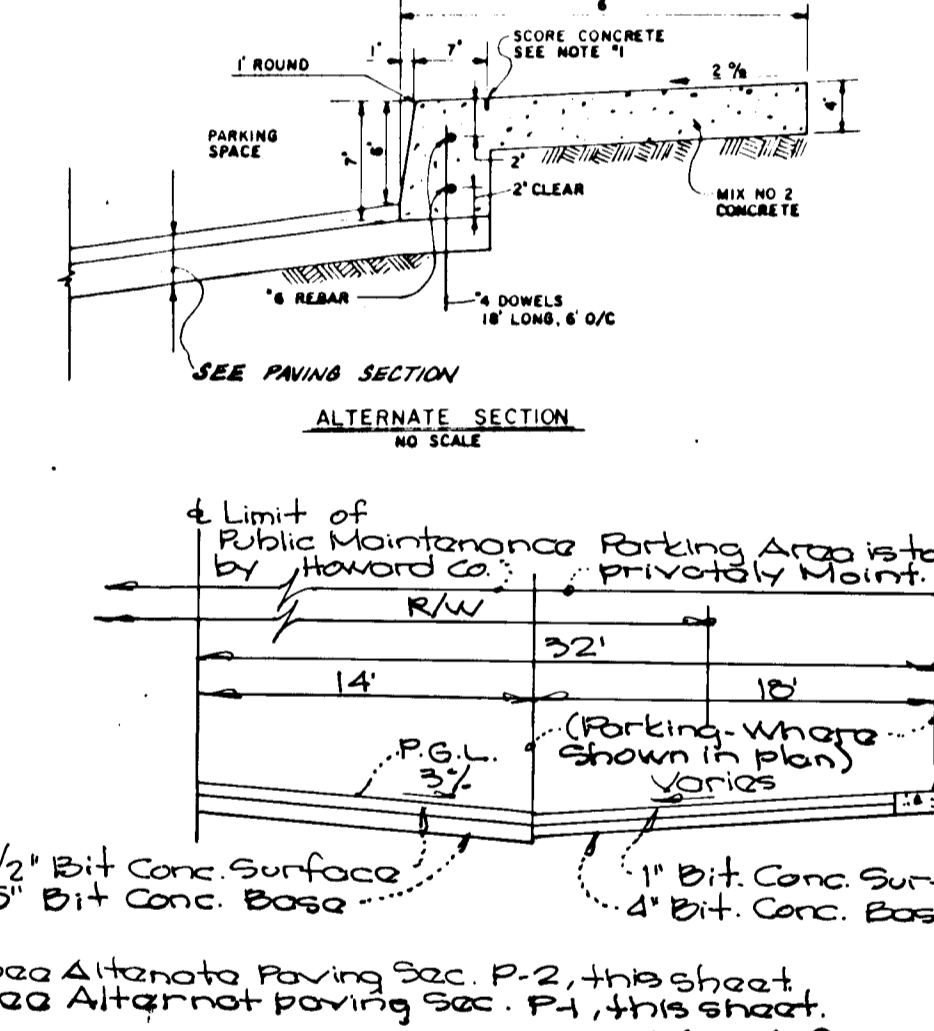 6'
SCORE CONCRETE
SEE NOTE #1
1" 7"
1" ROUND
2 %
4"
PARKING
SPACE
7" 6"
2"
2" CLEAR
MIX NO 2
CONCRETE
#6 REBAR
#4 DOWELS
18" LONG, 6' O/C
SEE PAVING SECTION
ALTERNATE SECTION
NO SCALE
℄ Limit of
Public Maintenance Parking Area is to
by Howard Co. privately Maint.
R/W
32'
14' 18'
(Parking-Where
Shown in plan)
P.G.L.
3% Varies
/2" Bit Conc. Surface 1" Bit. Conc. Sur-
5" Bit Conc. Base 4" Bit. Conc. Bas
ee Altenate Paving Sec. P-2, this sheet.
ee Alternat paving Sec. P-1, this sheet.